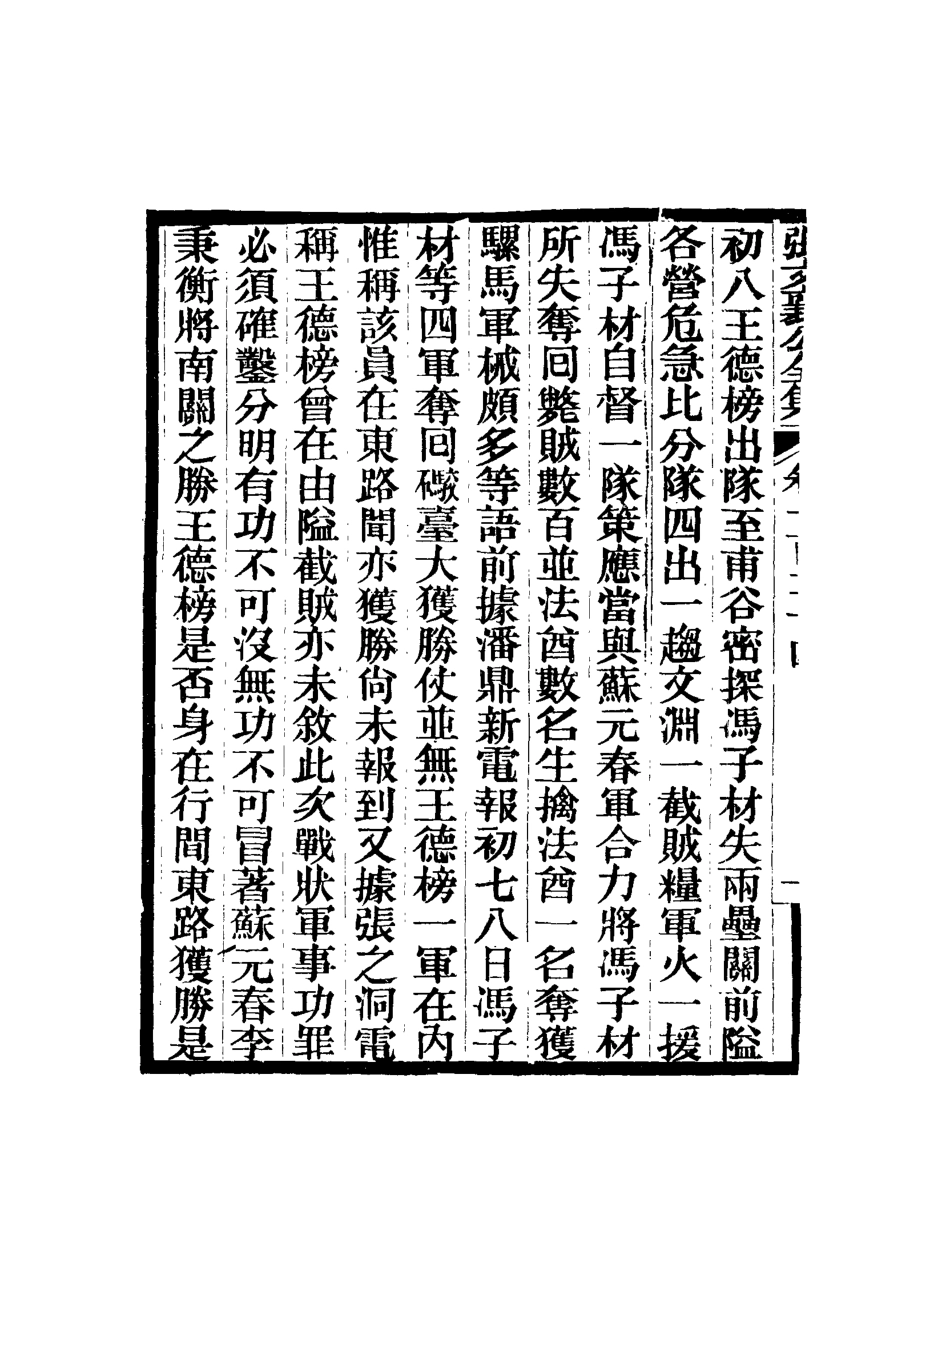 張文襄公全集 卷一百二十四 一
初八王德榜出隊至甫谷密探馮子材失兩壘關前隘
各營危急比分隊四出一趨文淵一截賊糧軍火一援
馮子材自督一隊策應當與蘇元春軍合力將馮子材
所失奪回斃賊數百並法酋數名生擒法酋一名奪獲
騾馬軍械頗多等語前據潘鼎新電報初七八日馮子
材等四軍奪回礮臺大獲勝仗並無王德榜一軍在內
惟稱該員在東路聞亦獲勝尙未報到又據張之洞電
稱王德榜曾在由隘截賊亦未敘此次戰狀軍事功罪
必須確鑿分明有功不可沒無功不可冒著蘇元春李
秉衡將南關之勝王德榜是否身在行間東路獲勝是